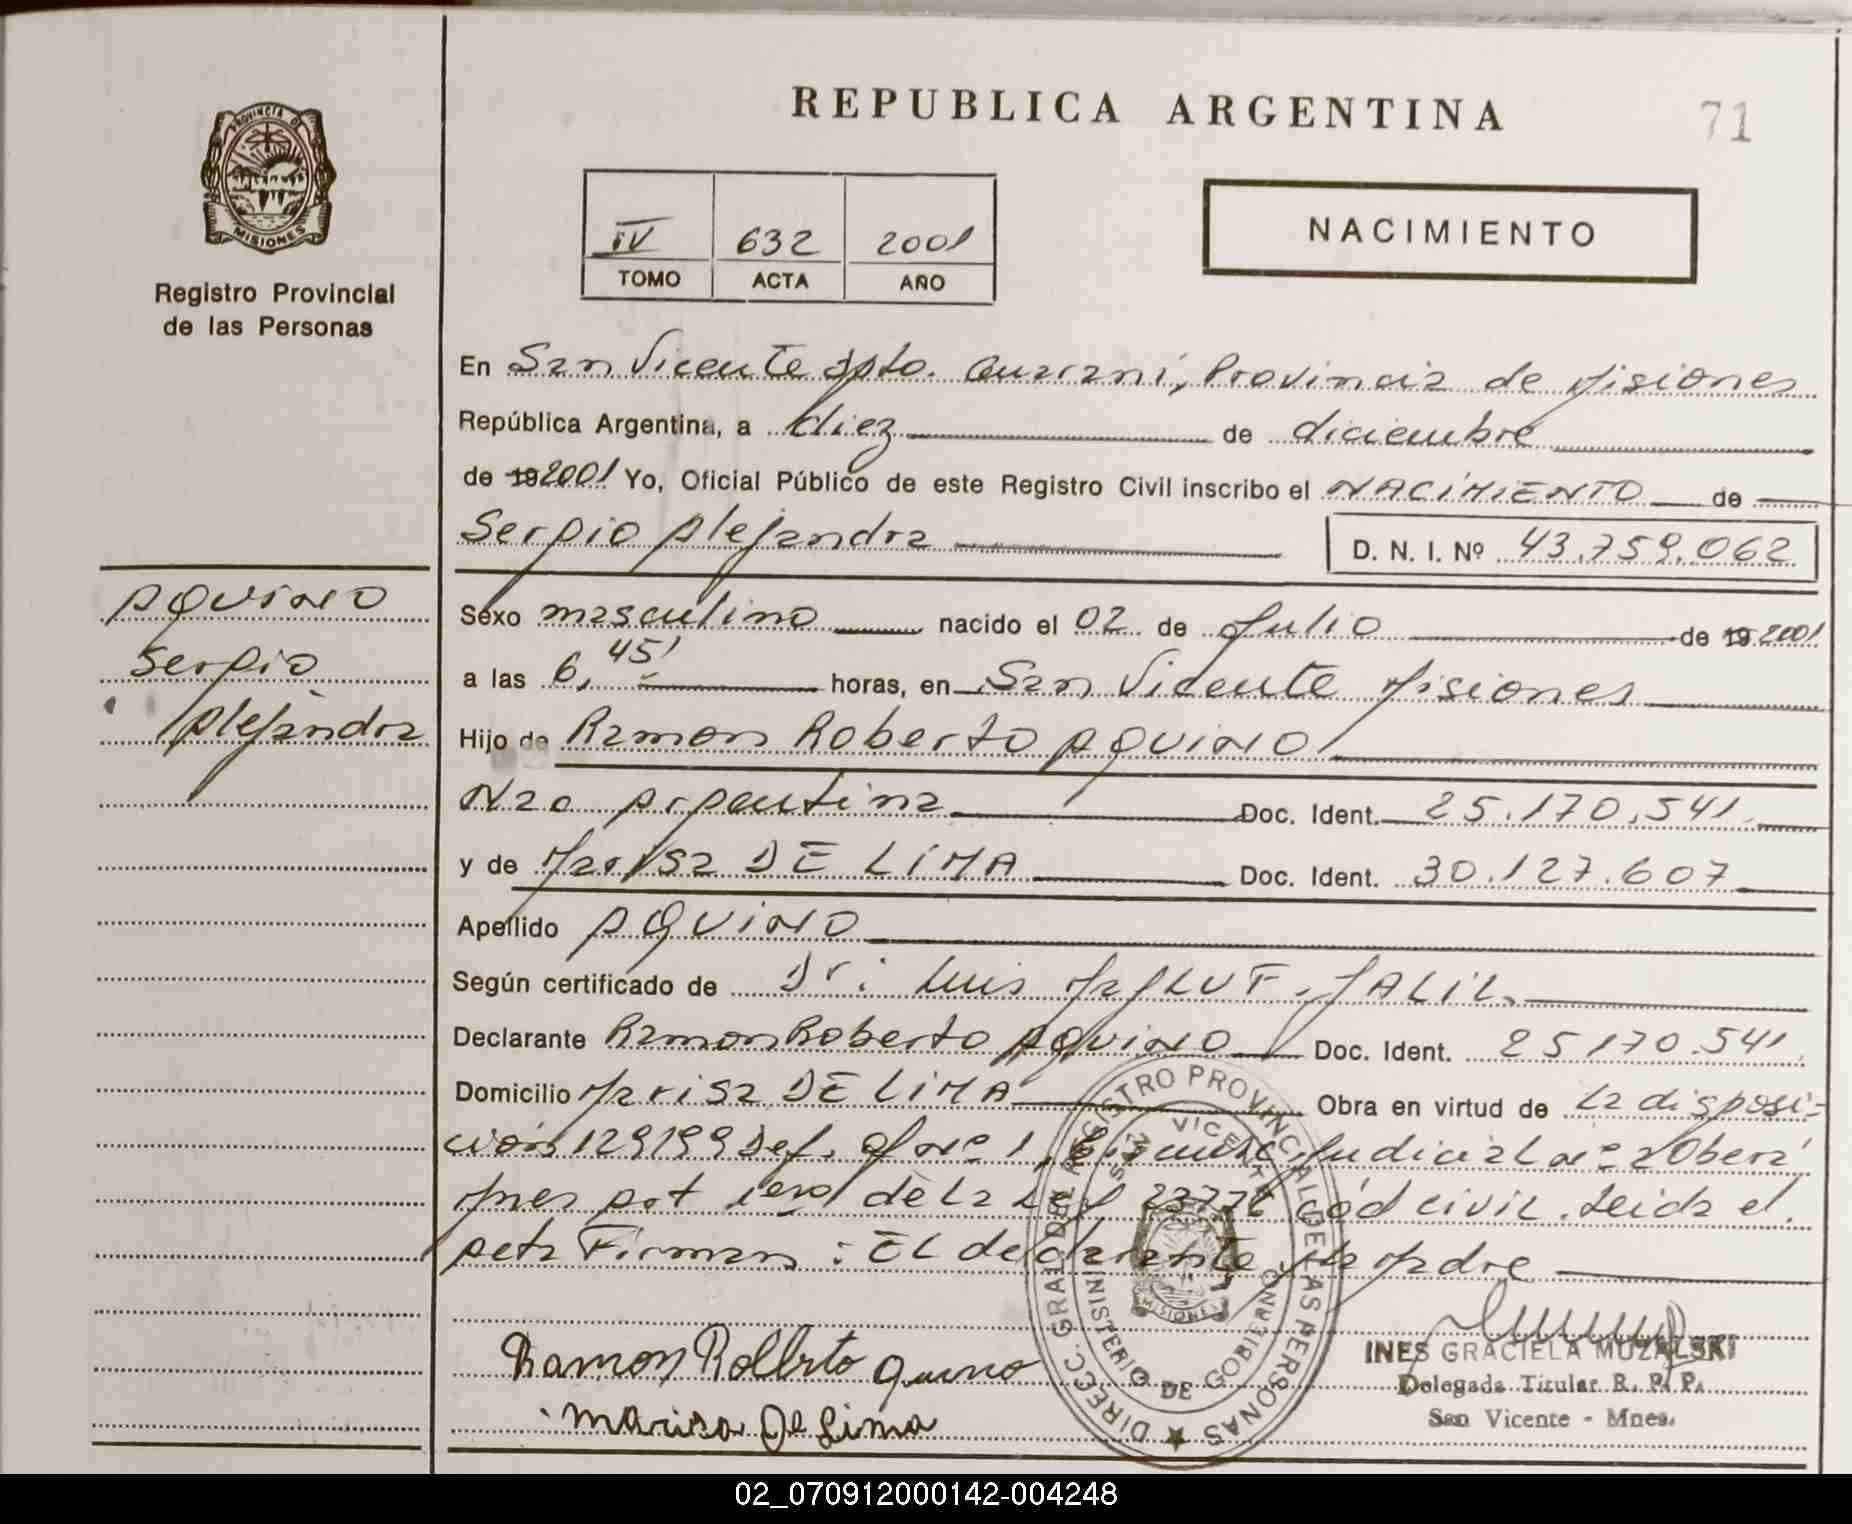 REPUBLICA ARGENTINA
71
PROVINCIA DE
MISIONES
Registro Provincial
de las Personas
IV 632 2001
TOMO ACTA AÑO
NACIMIENTO
En San Vicente Dpto. Guaraní, Provincia de Misiones
República Argentina, a diez de diciembre
de 19 2001 Yo, Oficial Público de este Registro Civil inscribo el NACIMIENTO de
Sergio Alejandro
D. N. I. Nº 43.759.062
AQUINO
Sergio
Alejandro
Sexo masculino nacido el 02 de Julio de 19 2001
a las 6,45' horas, en San Vicente Misiones
Hijo de Ramon Roberto AQUINO
Nac Argentina Doc. Ident. 25.170.541
y de Marisa DE LIMA Doc. Ident. 30.127.607
Apellido AQUINO
Según certificado de Dr: Luis JALIL.
Declarante Ramon Roberto AQUINO Doc. Ident. 25170.541.
Domicilio Marisa DE LIMA Obra en virtud de La disposi=
ción 129199 Def. Of Nº 1, Judicial Nº 2 Oberá
de La Ley 23776 cód civil. Leida el
acta Firman: EL declarante y La Madre
Ramon Rolberto Quino
Marisa De Lima
DIRECC. GRAL. DEL REGISTRO PROVINCIAL DE LAS PERSONAS
SAN VICENTE
MISIONES
MINISTERIO DE GOBIERNO
INES GRACIELA MUZALSKI
Delegada Titular R. P. P.
San Vicente - Mnes.
02_070912000142-004248